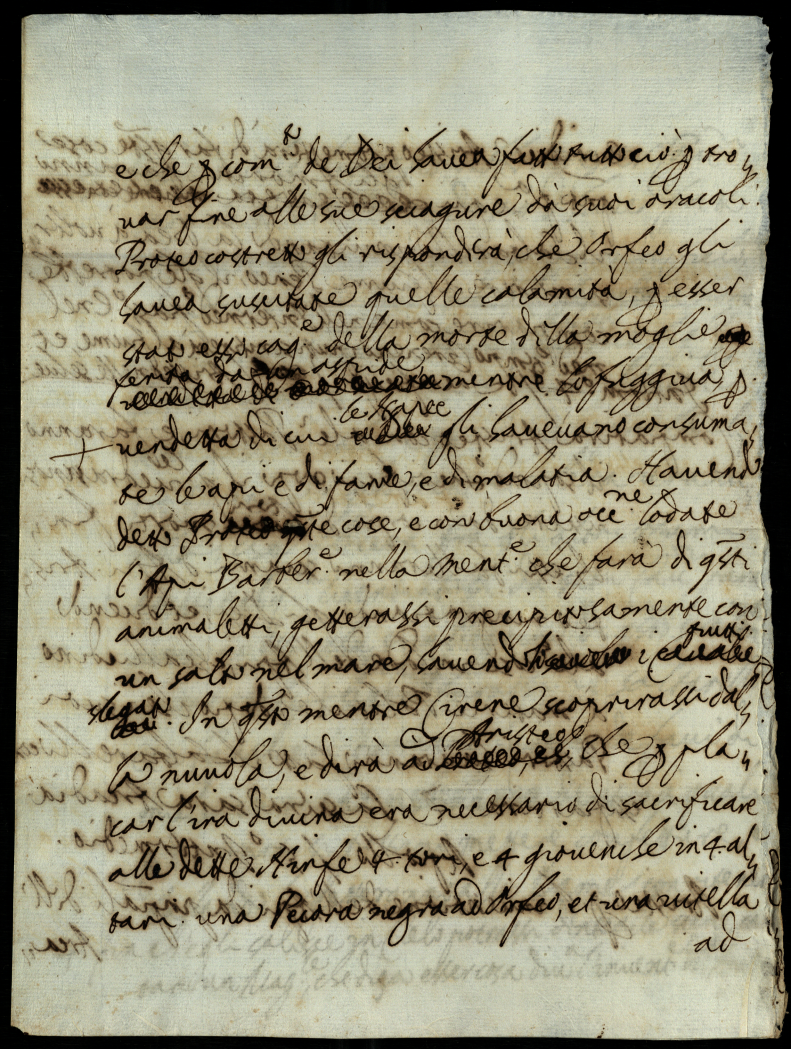 e che p com.to de Dei havea fatto tutto ciò p tro„
var fine alle sue sciagure dà suoi oracoli.
Proteo costretto gli risponderà, che Orfeo gli
havea suscitate quelle calamità, p esser
stato esso cag.e della morte della moglie
ferita da un aspide mentre lo fuggiva, p
vendetta di cui le Napee gli havevano consuma„
te le api e di fame, e di malatia. Havendo
detto Proteo q̃ste cose, e con buona occ.ne lodate
l'Api Barber.e nella ment.e che farà di q̃sti
animaletti, getterassi precipitosamente con
un salto nel mare, havendo i tutti
slegato. In q̃sto mentre Cirene scoprirassi dal„
la nuvola, e dirà ad Aristeo, che p pla„
car l'ira divina era necessario di sacrificare
alle dette Ninfe 4 tori, e 4 giovenche in 4 al„
tari. una Pecora negra ad Orfeo, et una vitella
ad